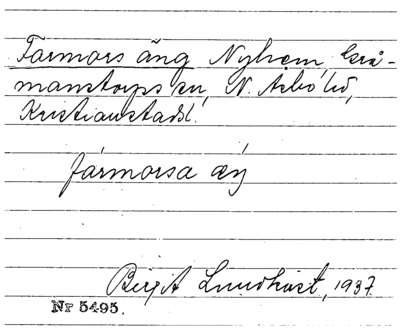 Farmors äng Nyhem, Grå-
manstorps sn, N. Åsbo hd,
Kristianstads l.
fármorsa æŋ
Birgit Lundkvist, 1937.
Nr 5495.